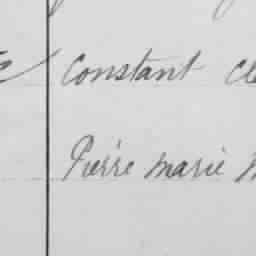 Constant
Pierre Marie